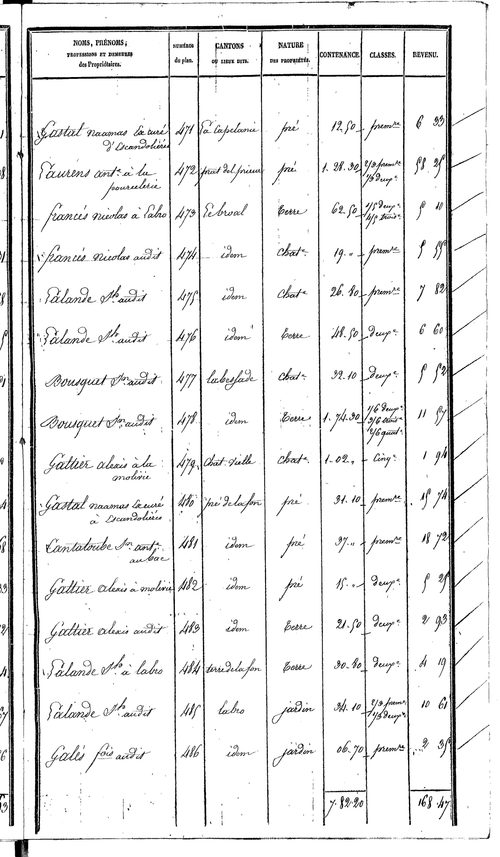 NOMS, PRÉNOMS, PROFESSIONS ET DEMEURES des Propriétaires. NUMÉROS du plan. CANTONS OU LIEUX DITS. NATURE DES PROPRIÉTÉS. CONTENANCE. CLASSES. REVENU.
Gastal naamas la curé 471 La Capelanie pré 12.50 prem.re 6 33
d'Escandolières
Laurens ant.e à la 472 prat del prieur pré 1.28.30 2/3 prem.re 58 25
pourcelerie 1/3 deux.e
francés nicolas à Labro 473 Le broval Terre 62.50 1/5 deux.e 5 10
4/5 trois.e
francés nicolas audit 474 idem Chat.e 19.. prem.re 5 55
Lalande J.h audit 475 idem Chat.e 26.80 prem.re 7 82
Lalande J.h audit 476 idem Terre 48.50 deux.e 6 60
Bousquet J.n audit 477 labesfade Chat.e 32.10 deux.e 5 52
Bousquet J.n audit 478 idem Terre 1.74.30 1/6 deux.e 11 57
3/6 trois.e
2/6 quat.e
Galtier alexis à la 479 Chat. vielle Chat.e 1.02.. Cinq.e 1 94
molivié
Gastal naamas la curé 480 pré de la fon pré 31.10 prem.re 15 74
à Escandolières
Cantaloube J.n ant.e 481 idem pré 37.. prem.re 18 72
au bac
Galtier alexis à molivié 482 idem pré 15.. deux.e 5 25
Galtier alexis audit 483 idem Terre 21.50 deux.e 2 93
Lalande J.h à labro 484 terre de la fon Terre 30.80 deux.e 4 19
Lalande J.h audit 485 labro jardin 34.10 2/3 prem.re 10 61
1/3 deux.e
Galés fois audit 486 idem jardin 06.70 prem.re 2 35
7.82.20 168.47